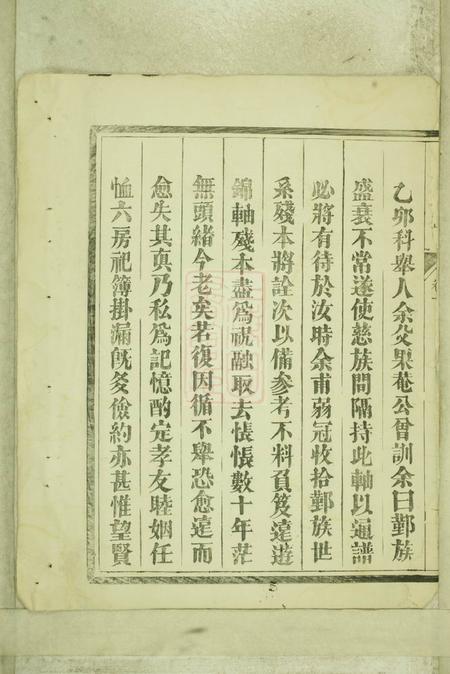 乙卯科舉人余父果菴公曾訓余曰鄞族
盛衰不常遂使慈族間隔持此軸以通譜
必將有待於汝時余甫弱冠收拾鄞族世
系殘本將詮次以備參考不料負笈遠遊
錦軸殘本盡爲祝融取去悵悵數十年茫
無頭緒今老矣若復因循不舉恐愈遠而
愈失其真乃私爲記憶酌定孝友睦婣任
恤六房祀簿掛漏旣多儉約亦甚惟望賢